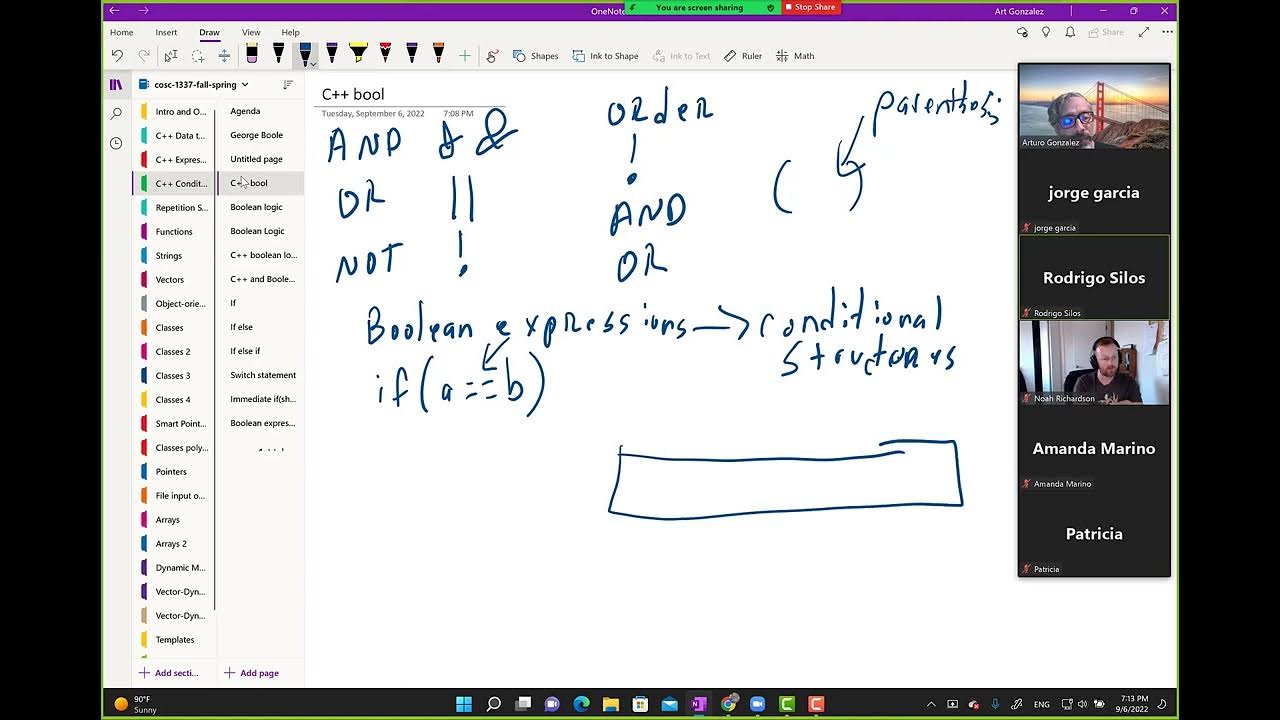 OneNote
You are screen sharing
Stop Share
Art Gonzalez
Home Insert Draw View Help
Share
Shapes Ink to Shape Ink to Text Ruler Math
cosc-1337-fall-spring
Intro and O...
C++ Data t...
C++ Expres...
C++ Condit...
Repetition S...
Functions
Strings
Vectors
Object-orie...
Classes
Classes 2
Classes 3
Classes 4
Smart Point...
Classes poly...
Pointers
File input o...
Arrays
Arrays 2
Dynamic M...
Vector-Dyn...
Vector-Dyn...
Templates
Add secti...
Agenda
George Boole
Untitled page
C++ bool
Boolean logic
Boolean Logic
C++ boolean lo...
C++ and Boole...
If
If else
If else if
Switch statement
Immediate if(sh...
Boolean expres...
Add page
C++ bool
Tuesday, September 6, 2022 7:08 PM
AND &&
OR ||
NOT !
ORder
!
AND
OR
parenthesis
( )
Boolean expressions → conditional
structures
if(a==b)
Arturo Gonzalez
jorge garcia
jorge garcia
Rodrigo Silos
Rodrigo Silos
Noah Richardson
Amanda Marino
Amanda Marino
Patricia
Patricia
90°F
Sunny
ENG
7:13 PM
9/6/2022